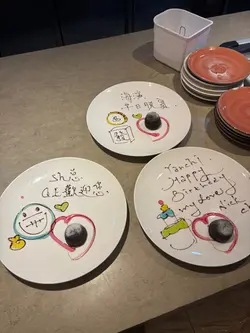 海岩
生日快樂
發
sh总
GE歡迎您
Yanchi
Happy
Birthday
my love
Nick